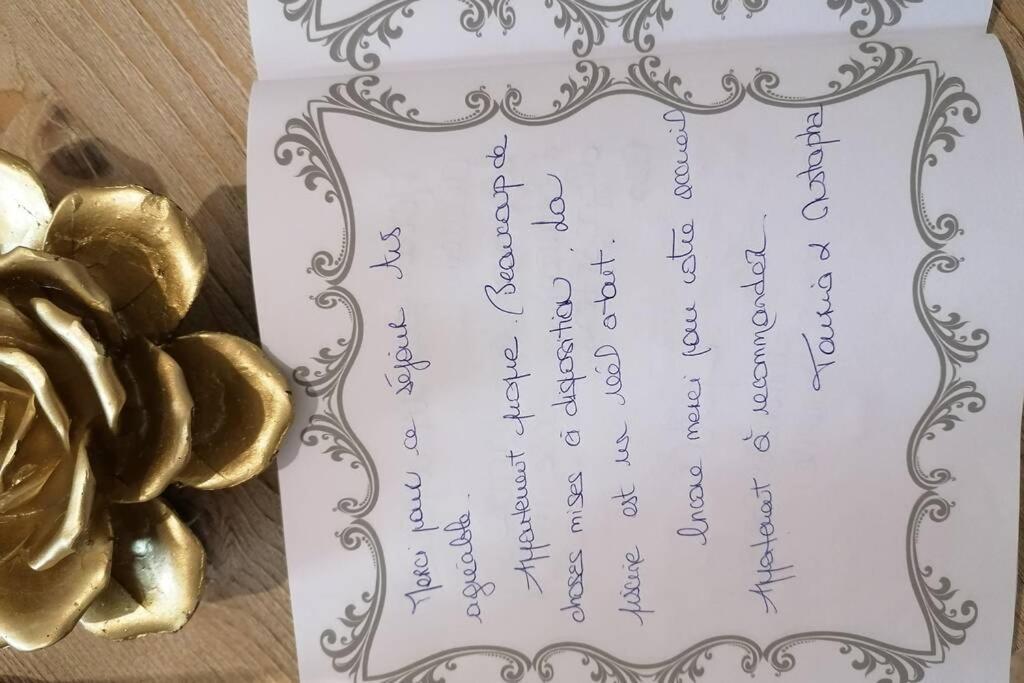 Merci pour ce séjour très
agréable.
Appartement propre. Beaucoup de
choses mises à disposition. La
piscine est un réel atout.
Encore merci pour votre accueil
Appartement à recommander.
& Mustapha